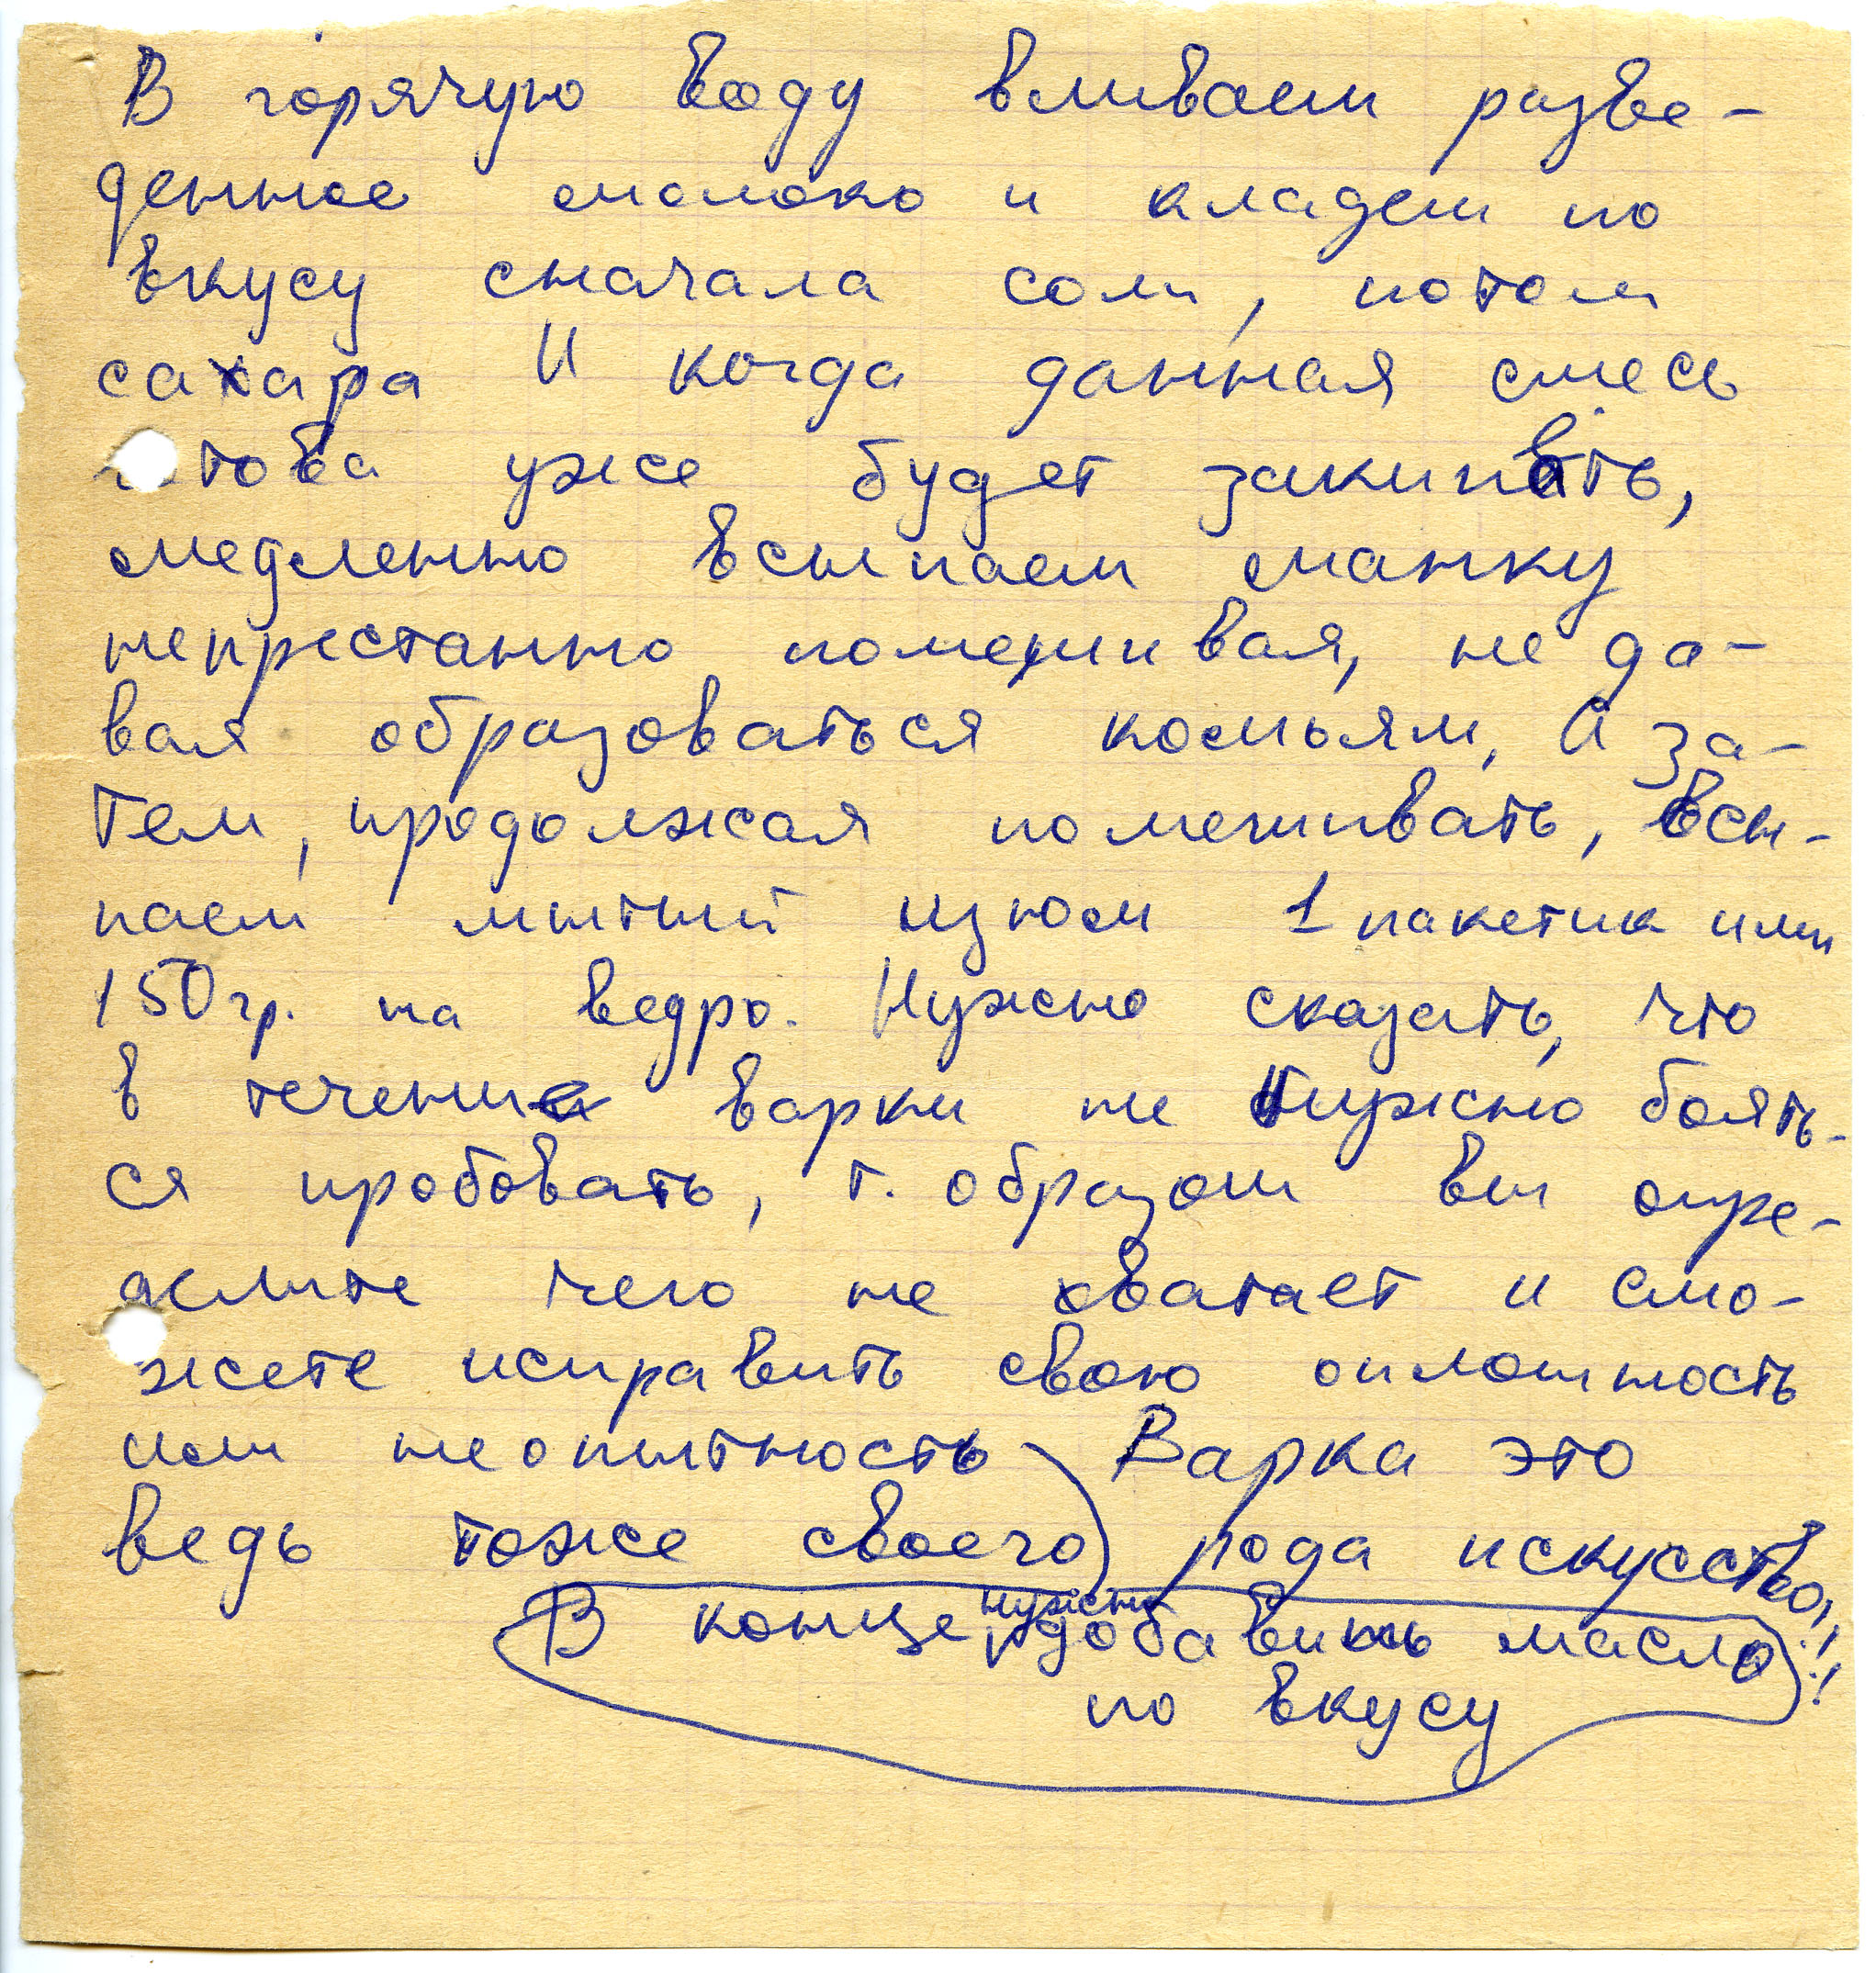 В горячую воду вливаем разве-
денное молоко и кладем по
вкусу сначала соли, потом
сахара И когда данная смесь
готова уже будет закипать,
медленно всыпаем манку
непрестанно помешивая, не да-
вая образоваться комьям, А за-
тем, продолжая помешивать, всы-
паем мытый изюм 1 пакетик или
150 гр. на ведро. Нужно сказать, что
в течении варки не нужно боять-
ся пробовать, т. образом вы опре-
делите чего не хватает и смо-
жете исправить свою оплошность
или неопытность Варка это
ведь тоже своего рода искусство,!!
нужно
В конце добавить масло
по вкусу